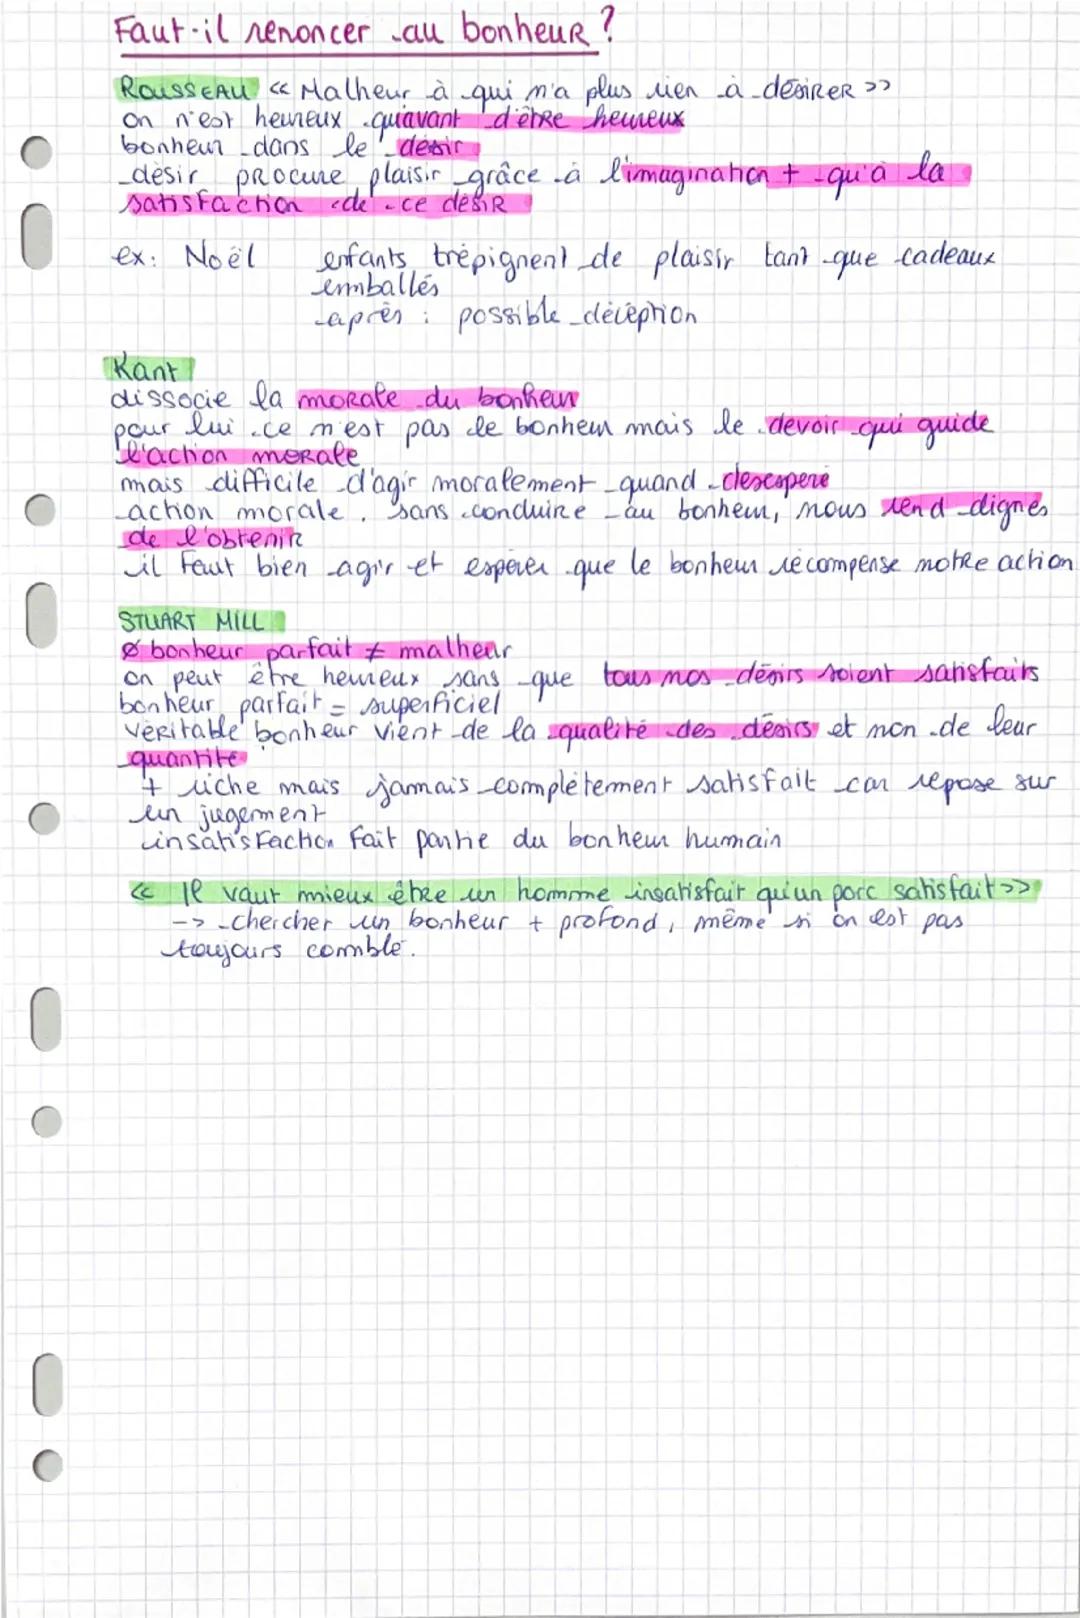 Faut-il renoncer au bonheur ?
ROUSSEAU « Malheur à qui n'a plus rien à désirer »
on n'est heureux qu'avant d'être heureux
bonheur dans le désir
désir procure plaisir grâce à l'imagination + qu'à la
satisfaction de ce désir
ex: Noël enfants trépignent de plaisir tant que cadeaux
emballés
après : possible déception
Kant
dissocie la morale du bonheur
pour lui ce n'est pas le bonheur mais le devoir qui guide
l'action morale
mais difficile d'agir moralement quand desespéré
action morale, sans conduire au bonheur, nous rend dignes
de l'obtenir
il faut bien agir et espérer que le bonheur récompense notre action
STUART MILL
Ø bonheur parfait ≠ malheur
on peut être heureux sans que tous nos désirs soient satisfaits
bonheur parfait = superficiel
véritable bonheur vient de la qualité des désirs et non de leur
quantité
+ riche mais jamais complètement satisfait car repose sur
un jugement
insatisfaction fait partie du bonheur humain
« Il vaut mieux être un homme insatisfait qu'un porc satisfait »
-> chercher un bonheur + profond, même si on est pas
toujours comblé.